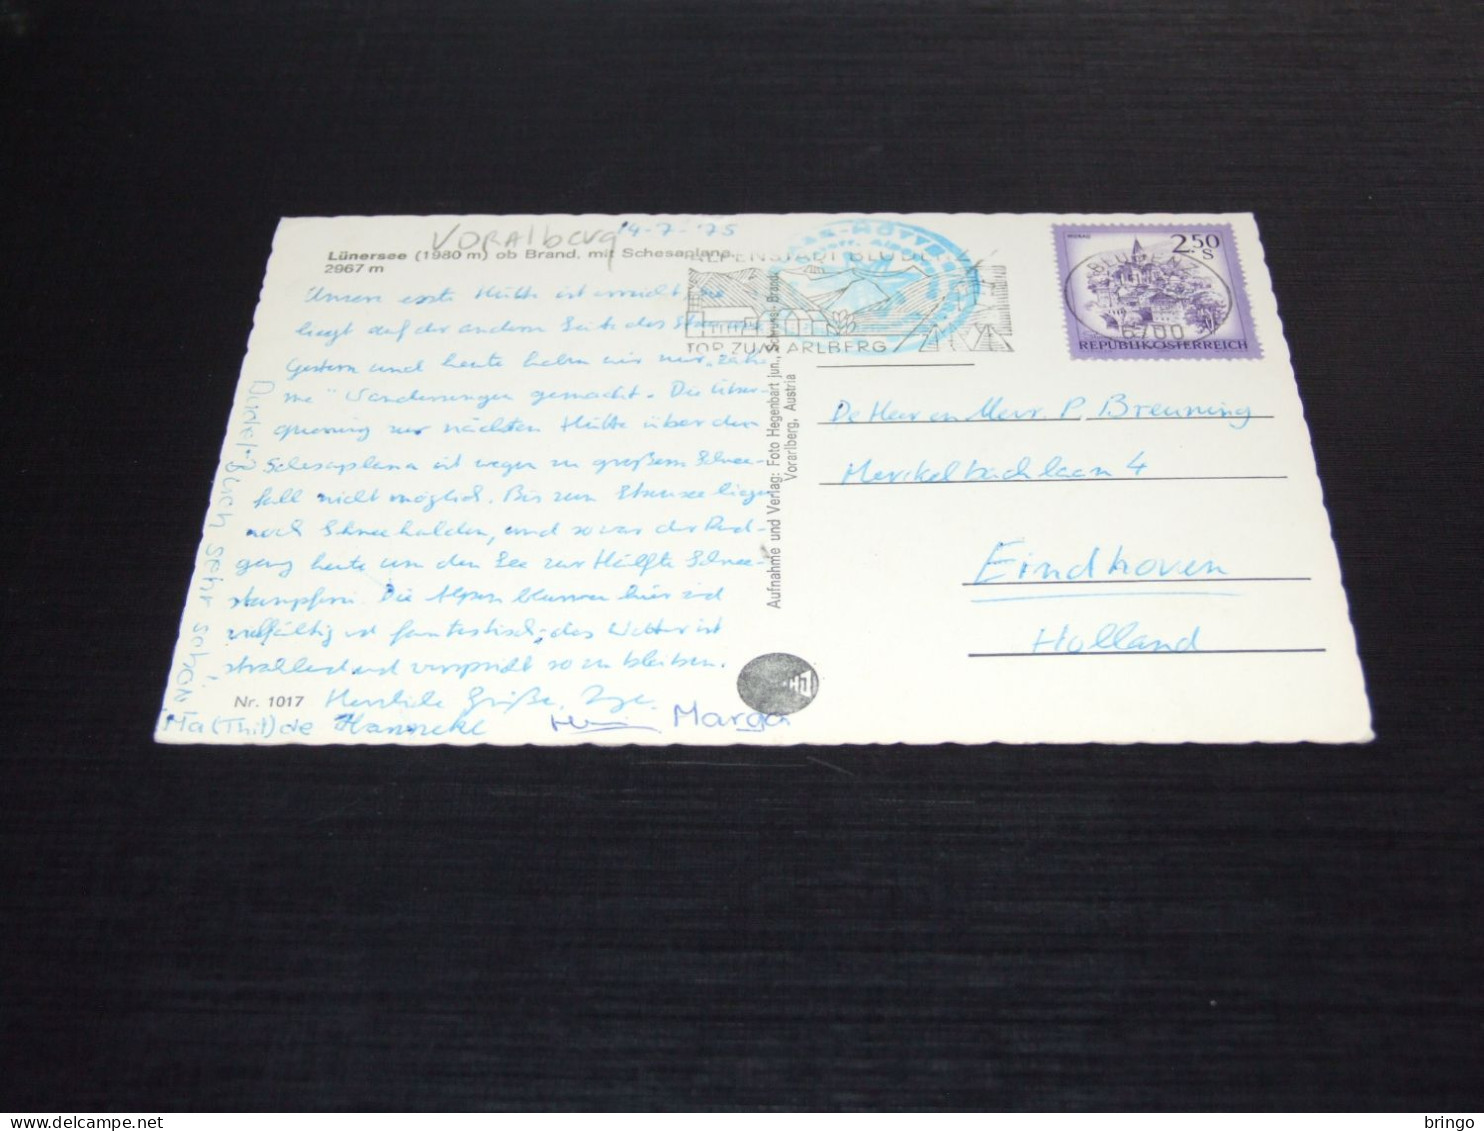 VORAlberg 19-7-'75
Lünersee (1980 m) ob Brand, mit Schesaplana,
2967 m
Unsere erste Hütte ist erreicht, sie
liegt auf der andern Seite des
Gestern und heute haben wir nur „zah-
me" Wanderungen gemacht. Die Über-
querung zur nächsten Hütte über den
Schesaplana ist wegen zu großem Schnee-
fall nicht möglich. Bis zum liegen
noch Schneehalden, und so war der Rund-
gang heute um den See zur Hälfte Schnee-
stampfen. Die Alpenblumen hier sind
vielfältig und fantastisch, das Wetter ist
strahlend und verspricht so zu bleiben.
Nr. 1017 Herzliche Grüße, Inge.
Ma(Thil)de Hanneke Marga
sehr schön!
ALPENSTADT BLUDENZ
TOR ZUM ARLBERG
HÜTTE
Aufnahme und Verlag: Foto Hegenbart jun., Schruns - Brand,
Vorarlberg, Austria
HJ
MURAU
2.50
S
REPUBLIK ÖSTERREICH
BLUDENZ
6700
De Heer en Mevr. P. Breuning
Merckelbachlaan 4
Eindhoven
Holland
© delcampe.net
bringo